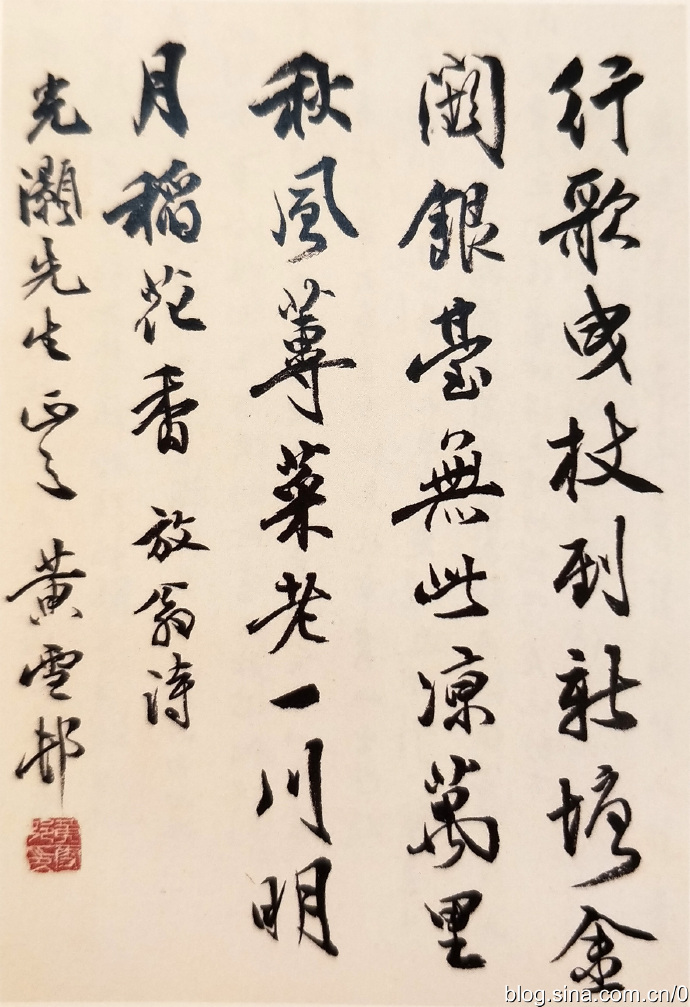 行歌曳杖到新塘金
闕銀臺無此涼萬里
秋風蓴菜老一川明
月稻花香 放翁詩
光灝先生 正之 黃雪邨
blog.sina.com.cn/0